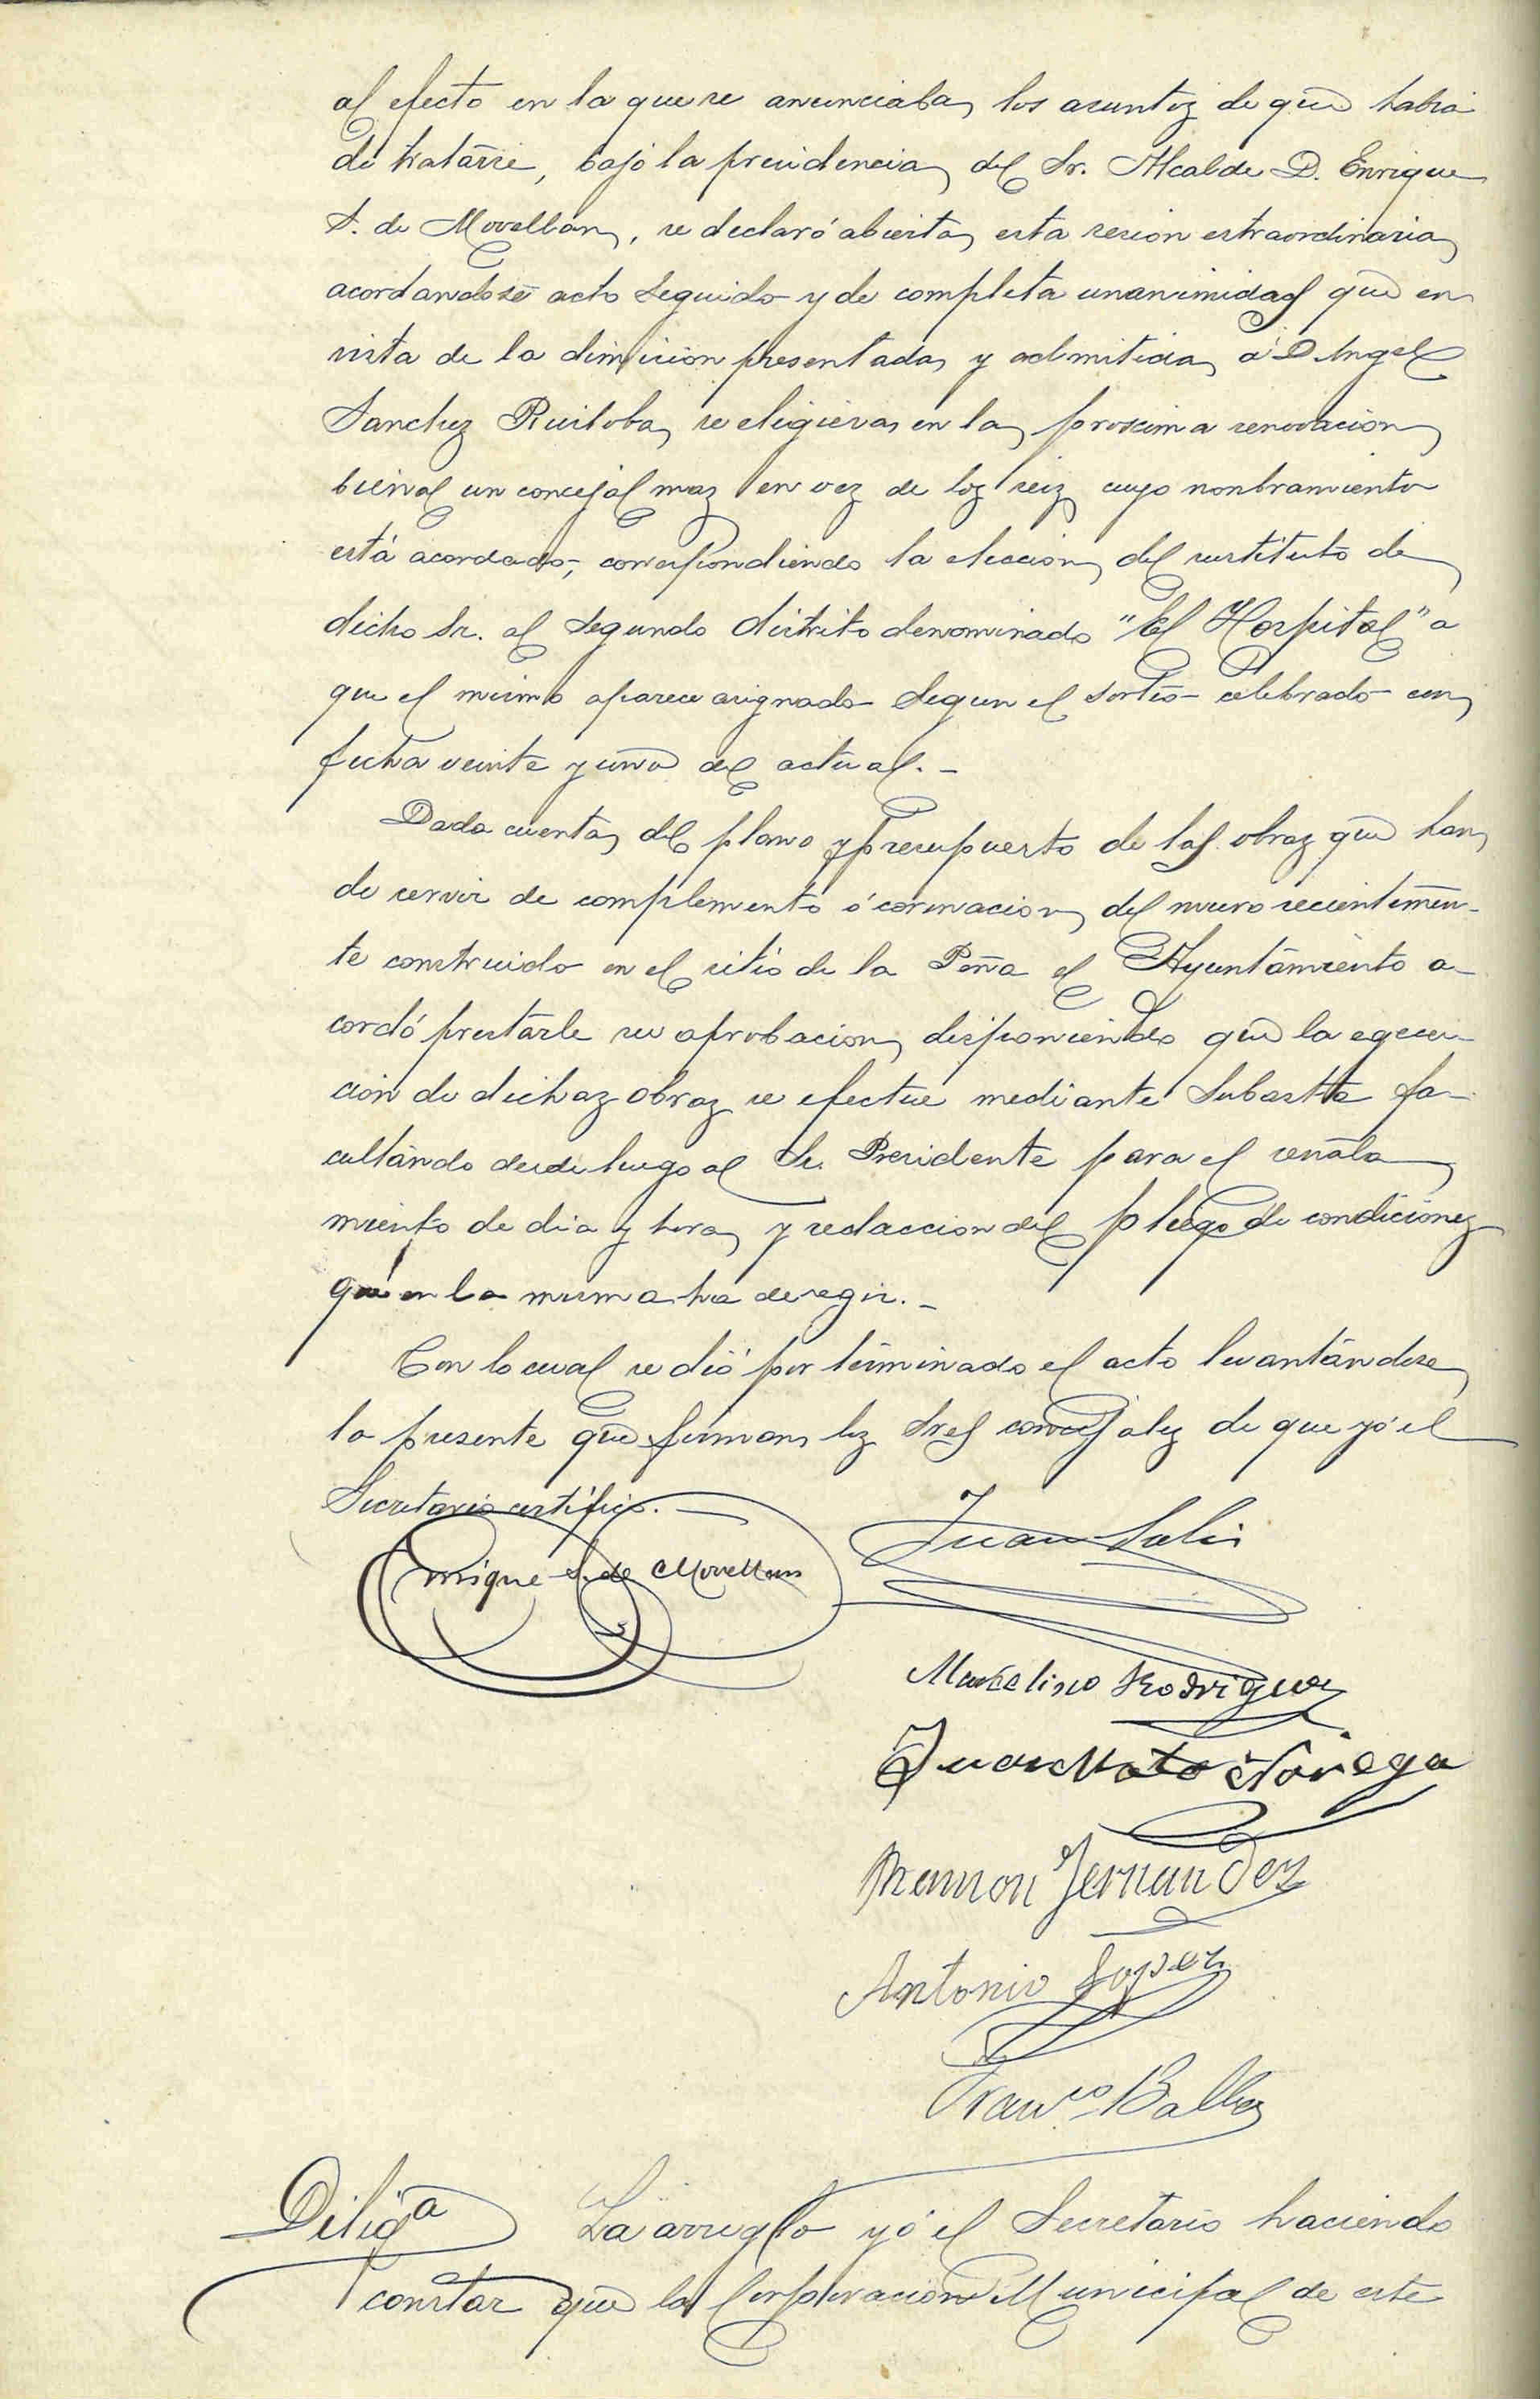 al efecto en la que se anunciaba los asuntos de que había
de tratarse, bajo la presidencia del Sr. Alcalde D. Enrique
S. de Movellan, se declaró abierta esta sesion estraordinaria
acordandose acto seguido y de completa unanimidad que en
vista de la dimision presentada y admitida á D Angel
Sanchez Ruiloba, se eligiera en la proxima renovacion
bienal un concejal mas en vez de los seis cuyo nonbramiento
está acordado, correspondiendo la eleccion del sustituto de
dicho Sr. al segundo distrito denominado "El Hospital" a
que el mismo aparece asignado segun el sorteo celebrado con
fecha veinte y uno del actual.-
Dada cuenta del plano y presupuesto de las obras que han
de servir de complemento ó coronacion del muro recientemen-
te construido en el sitio de la Peña el Ayuntamiento a-
cordó prestarle su aprobacion, disponiendo que la egecu-
cion de dichas obras se efectue mediante subasta fa-
cultando desde luego al Sr. Presidente para el señala
miento de dia y hora y redaccion del pliego de condiciones
que en la misma ha de regir.-
Con lo cual se dió por terminado el acto levantándose
la presente que firman los Sres concejales de que yó el
Secretario certifico.-
Enrique S. de Movellan
Juan Solis
Marcelino Rodriguez
Juan Mato Noriega
Ramon Fernandez
Antonio Lopez
Franco Balbas
Diliga La arreglo yó el Secretario haciendo
constar que la Corporacion Municipal de este